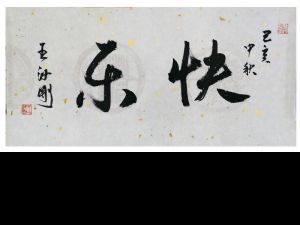 己亥
中秋
快乐
王海刚